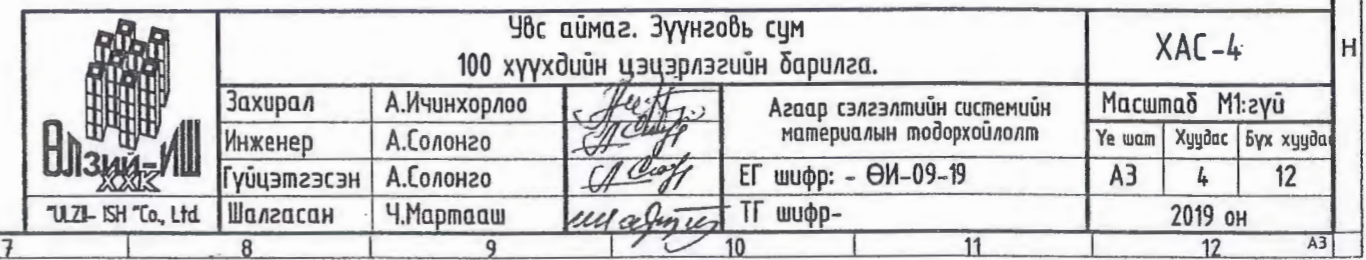 Увс аймаг. Зүүнговь сум
100 хүүхдийн цэцэрлэгийн барилга.
ХАС-4
Н
Захирал А.Ичинхорлоо
Инженер А.Солонго
Гүйцэтгэсэн А.Солонго
Шалгасан Ч.Мартааш
Агаар сэлгэлтийн системийн
материалын тодорхойлолт
ЕГ шифр: - ӨИ-09-19
ТГ шифр-
Масштаб М1:гүй
Үе шат Хуудас Бүх хууда
А3 4 12
2019 он
ӨЛЗИЙ-ИШ
ХХК
"ULZII- ISH "Co., Ltd.
7 8 9 10 11 12 А3